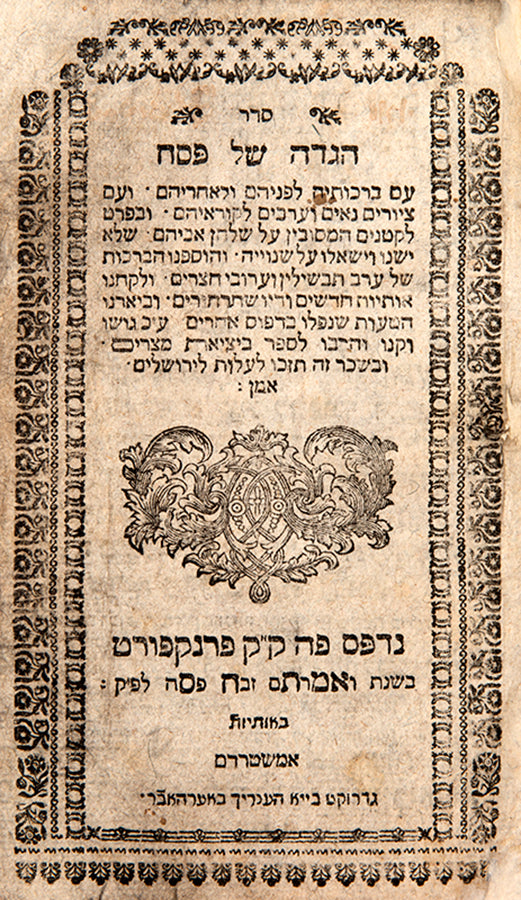 סדר
הגדה של פסח
עם ברכותיה לפניהם ולאחריהם · ועם
ציורים נאים וערבים לקוראיהם · ובפרט
לקטנים המסובין על שלחן אביהם · שלא
ישנו וישאלו על שנוייה · והוספנו הברכות
של ערב תבשילין וערובי חצרים · ולקחנו
אותיות חדשים ודיו שחרחרים · וביארנו
הטעות שנפלו בדפוס אחרים · ע״כ גושו
וקנו והרבו לספר ביציאת מצרים ·
ובשכר זה תזכו לעלות לירושלים ·
אמן :
נדפס פה ק״ק פרנקפורט
בשנת ואמרתם זבח פסח לפ״ק :
באותיות
אמשטרדם
גדרוקט בייא הענריך באערהאבר ·